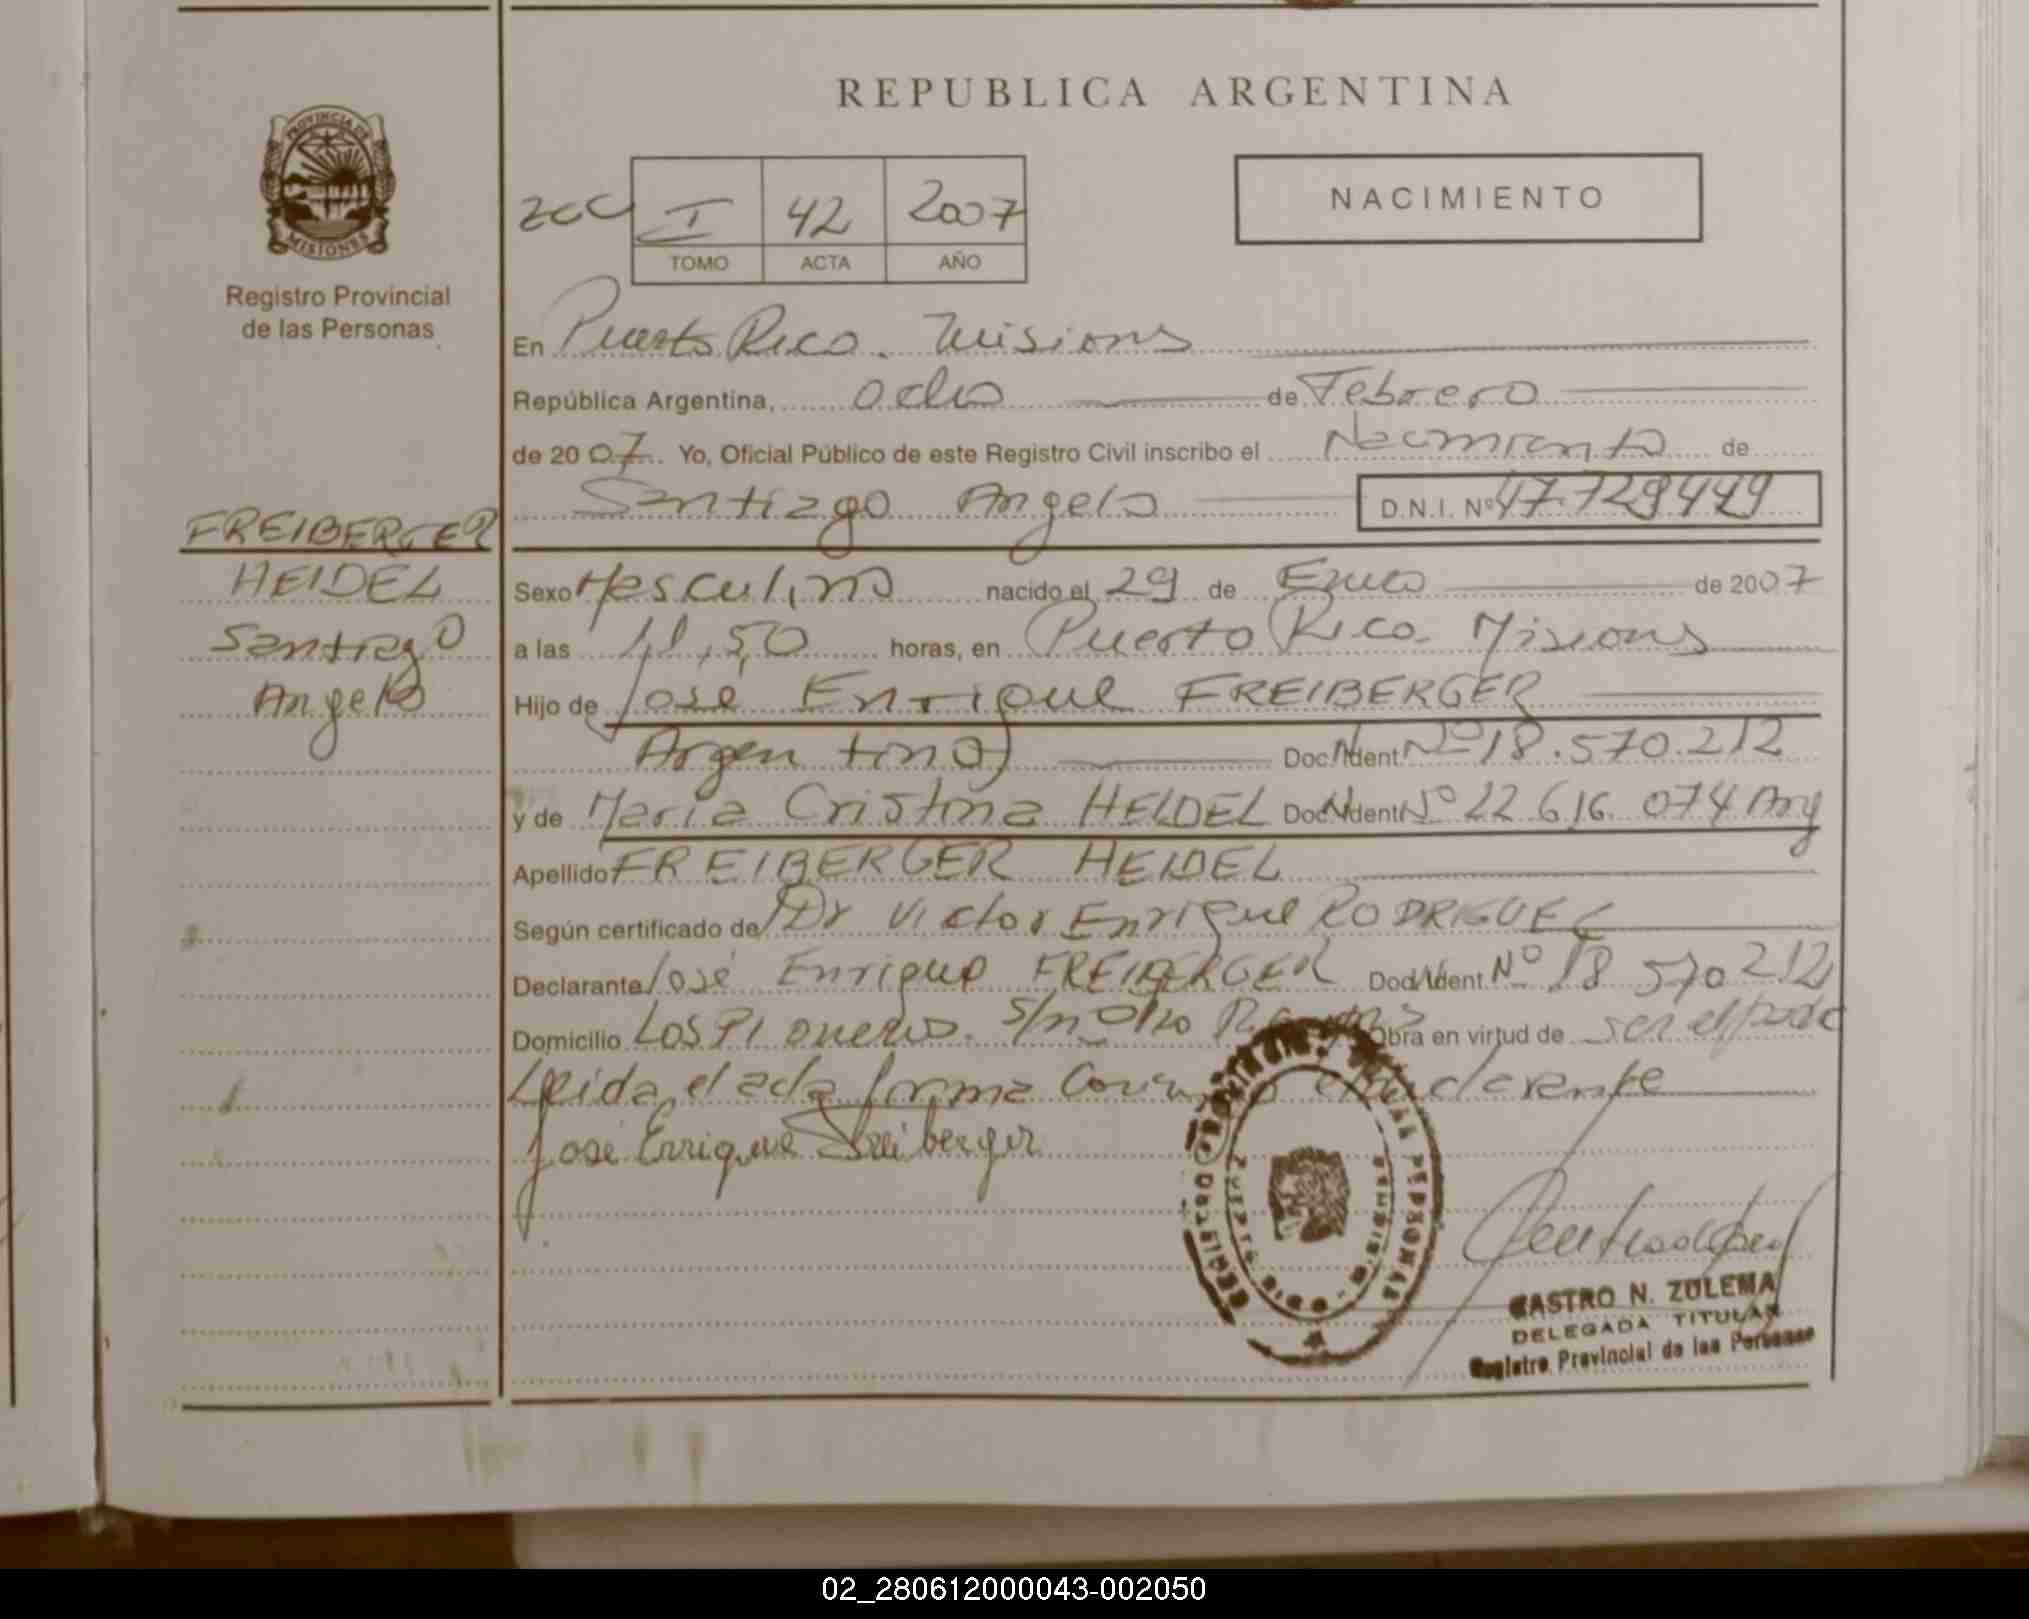 REPUBLICA ARGENTINA
PROVINCIA DE
MISIONES
Registro Provincial
de las Personas
I 42 2007
TOMO ACTA AÑO
NACIMIENTO
En Puerto Rico. Misiones
República Argentina, ocho de Febrero
de 2007 Yo, Oficial Público de este Registro Civil inscribo el Nacimiento de
Santiago Angelo D.N.I. Nº 47.729449
FREIBERGER
HEIDEL
Santiago
Angelo
Sexo Masculino nacido el 29 de Enero de 2007
a las 11,50 horas, en Puerto Rico. Misiones
Hijo de José Enrique FREIBERGER
(Argentino) Doc. Ident Nº 18.570.212
y de Maria Cristina HEIDEL Doc. Ident Nº 22.616.074 Arg
Apellido FREIBERGER HEIDEL
Según certificado de Dr Victor Enrique RODRIGUEZ
Declarante José Enrique FREIBERGER Doc. Ident Nº 18 570 212
Domicilio Los Pioneros. S/nº Obra en virtud de ser el padre
Leida el acta firma declarante
José Enrique Freiberger
CASTRO N. ZULEMA
DELEGADA TITULAR
Registro Provincial de las Personas
02_280612000043-002050